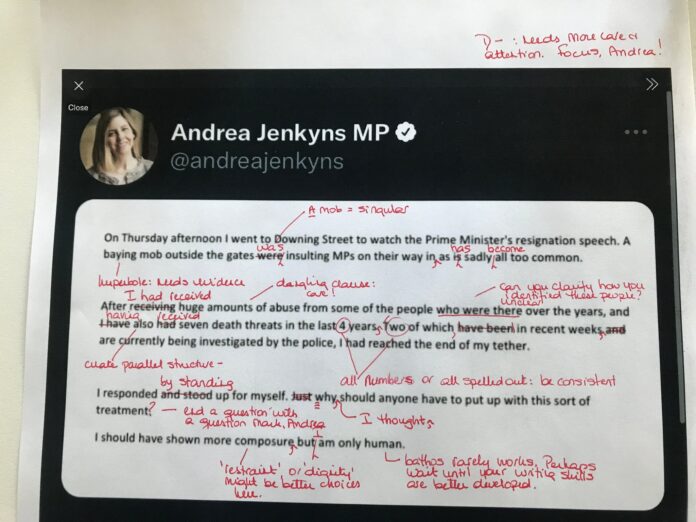 D- : Needs more care &
attention. Focus, Andrea!
Close
Andrea Jenkyns MP
@andreajenkyns
A mob = singular
On Thursday afternoon I went to Downing Street to watch the Prime Minister's resignation speech. A
was has become
baying mob outside the gates were insulting MPs on their way in as is sadly all too common.
Hyperbole: Needs evidence
dangling clause:
care!
Can you clarify how you
identified these people?
Unclear
I had received
After receiving huge amounts of abuse from some of the people who were there over the years, and
having received
I have also had seven death threats in the last 4 years. Two of which have been in recent weeks and
are currently being investigated by the police, I had reached the end of my tether.
create parallel structure -
all numbers or all spelled out: be consistent
by standing
I responded and stood up for myself. Just why should anyone have to put up with this sort of
treatment.
? - end a question with
a question mark, Andrea
I thought,
I
I should have shown more composure but am only human.
'restraint' or 'dignity'
might be better choices
here.
bathos rarely works. Perhaps
wait until your writing skills
are better developed.